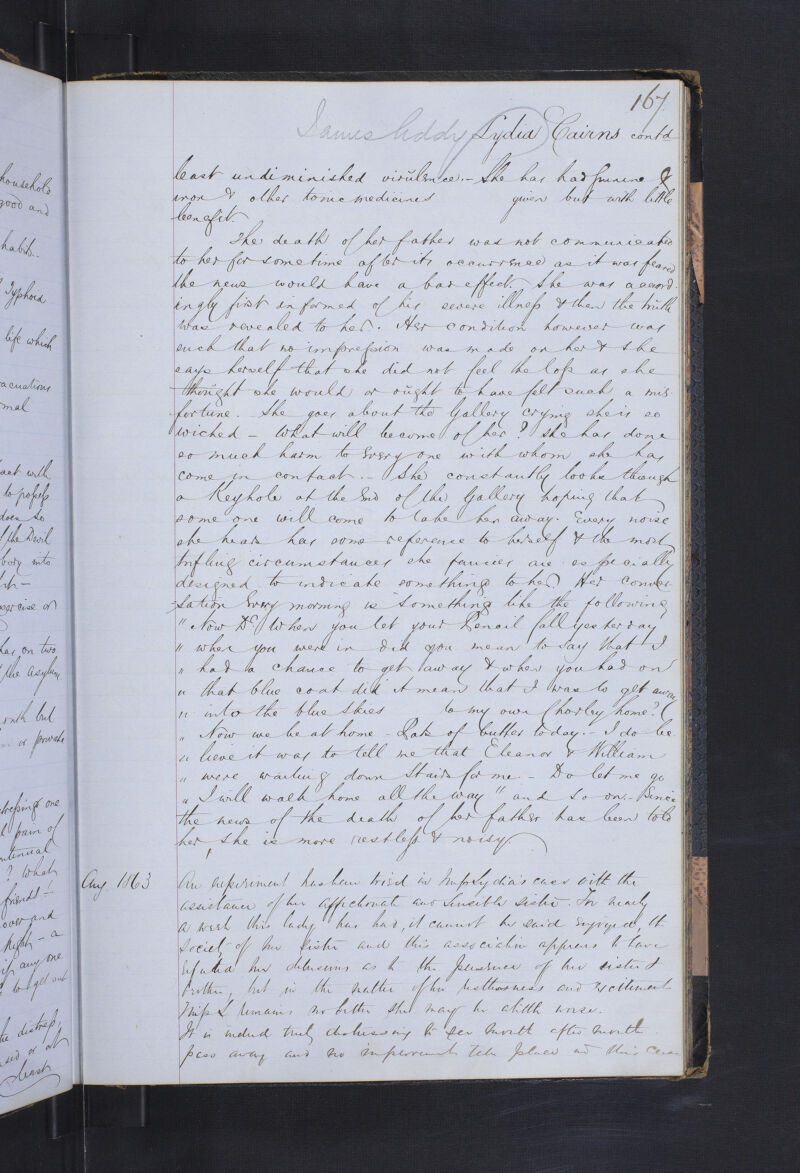 167
James Addy Lydia Cairns contd
least undiminished virulence. - She has had Quinine &
iron & other tonic medicines given but with little
benefit.
The death of her father was not communicated
to her for some time after its occurrence as it was feared
the news would have a bad effect. She was accord-
ingly first informed of his severe illness & then the truth
was revealed to her. Her condition however was
such that no impression was made on her & she
says herself that she did not feel the loss as she
thought she would or ought to have felt such a mis-
fortune. She goes about the Gallery crying she is so
wicked - What will become of her? She has done
so much harm to every one with whom she has
come in contact. - She constantly looks through
a Keyhole at the End of the Gallery hoping that
some one will come to take her away. Every noise
she hears has some reference to herself & the most
trifling circumstances she fancies are especially
designed to indicate something to her. Her conver-
sation Every morning is something like the following
" Now Dr. When you let your Pencil fall yesterday
" when you were in did you mean to say that I
" had a chance to get away & when you had on
" that blue coat did it mean that I was to get away
" into the blue skies to my own Chorley home?
" Now we be at home - Pats of butter today. - I do be-
" lieve it was to tell me that Eleanor & William
" were waiting down stairs for me. - Do let me go
" I will walk home all the way" and so on. Since
the news of the death of her father has been told
her, she is more restless & noisy
Aug. 1863 An experiment has been tried in Miss Lydia's case with the
assistance of her affectionate and sensible sister. For nearly
a week this lady has had, it cannot be said enjoyed, the
society of her sister and this association appears to have
refuted her delusions as to the presence of her sister &
brother, but in the matter of her restlessness and excitement
Miss L remains no better she may be a little worse.
It is indeed truly distressing to see month after month
pass away and no improvement take place in this case
household
good and
habits.
Typhoid
life which
evacuations
to possess
does so
the Devil
body into
exercise or
has on two
the asylum
or private
one
pain of
continual
? What
friends! -
over and
night - a
if any one
to get out
the distress